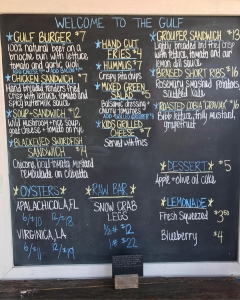 WELCOME TO THE GULF
GULF BURGER $7
100% natural beef on a
brioche bun with lettuce
tomato and garlic aioli
ADD CHEESE $1 ADD BACON $2
CHICKEN SANDWICH $7
Hand breaded tenders fried
crisp with lettuce, tomato and
spicy buttermilk sauce
SOUP + SANDWICH $12
Wild mushroom + rice soup
goat cheese + tomato on rye
BLACKENED SWORDFISH
SANDWICH $14
Chicora, local tomato, mustard
remoulade on ciabatta
OYSTERS
APALACHICOLA, FL
6/$10 12/$18
VIRGINICA, LA
6/$11 12/$19
HAND CUT
FRIES $4
HUMMUS $7
Crispy pita chips
MIXED GREEN
SALAD $5
Balsamic dressing +
cherry tomatoes
KIDS GRILLED
CHEESE $7
Served with fries
RAW BAR
SNOW CRAB
LEGS
1/2# $12
1# $22
GROUPER SANDWICH $13
Lightly breaded and fried crisp
with lettuce, tomato and our
lemon dill sauce
BRAISED SHORT RIBS $16
Rosemary smashed potatoes,
ROASTED COBIA
Bibb lettuce, fruity mustard,
grapefruit
DESSERT $5
Apple + olive oil cake
LEMONADE
Fresh Squeezed $3.50
Blueberry $4